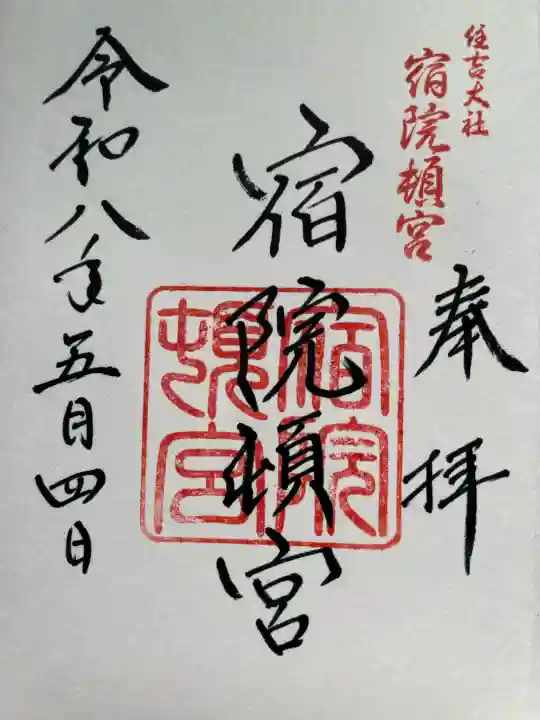 住吉大社
宿院頓宮
奉拝
宿院頓宮
宿院
頓宮
令和八年五月四日